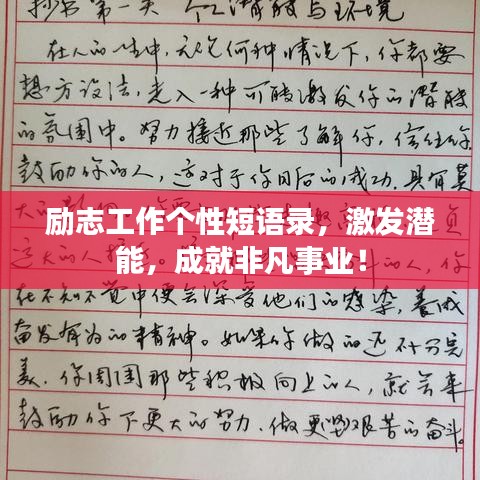 抄书第一天 个人潜能与环境
在人的一生中，无论何种情况下，你都要
想方设法，走入一种可能激发你的潜能
的氛围中。努力接近那些了解你，信任你
鼓励你的人，这对于你日后的成功，具有莫
大的
励志工作个性短语录，激发潜
能，成就非凡事业！
在不知不觉中便会深受他们的感染，养成
奋发有为的精神。如果你做的还不十分完
美，你周围那些积极向上的人，就会来
鼓励你下更大的努力，做更坚艰苦的奋斗。